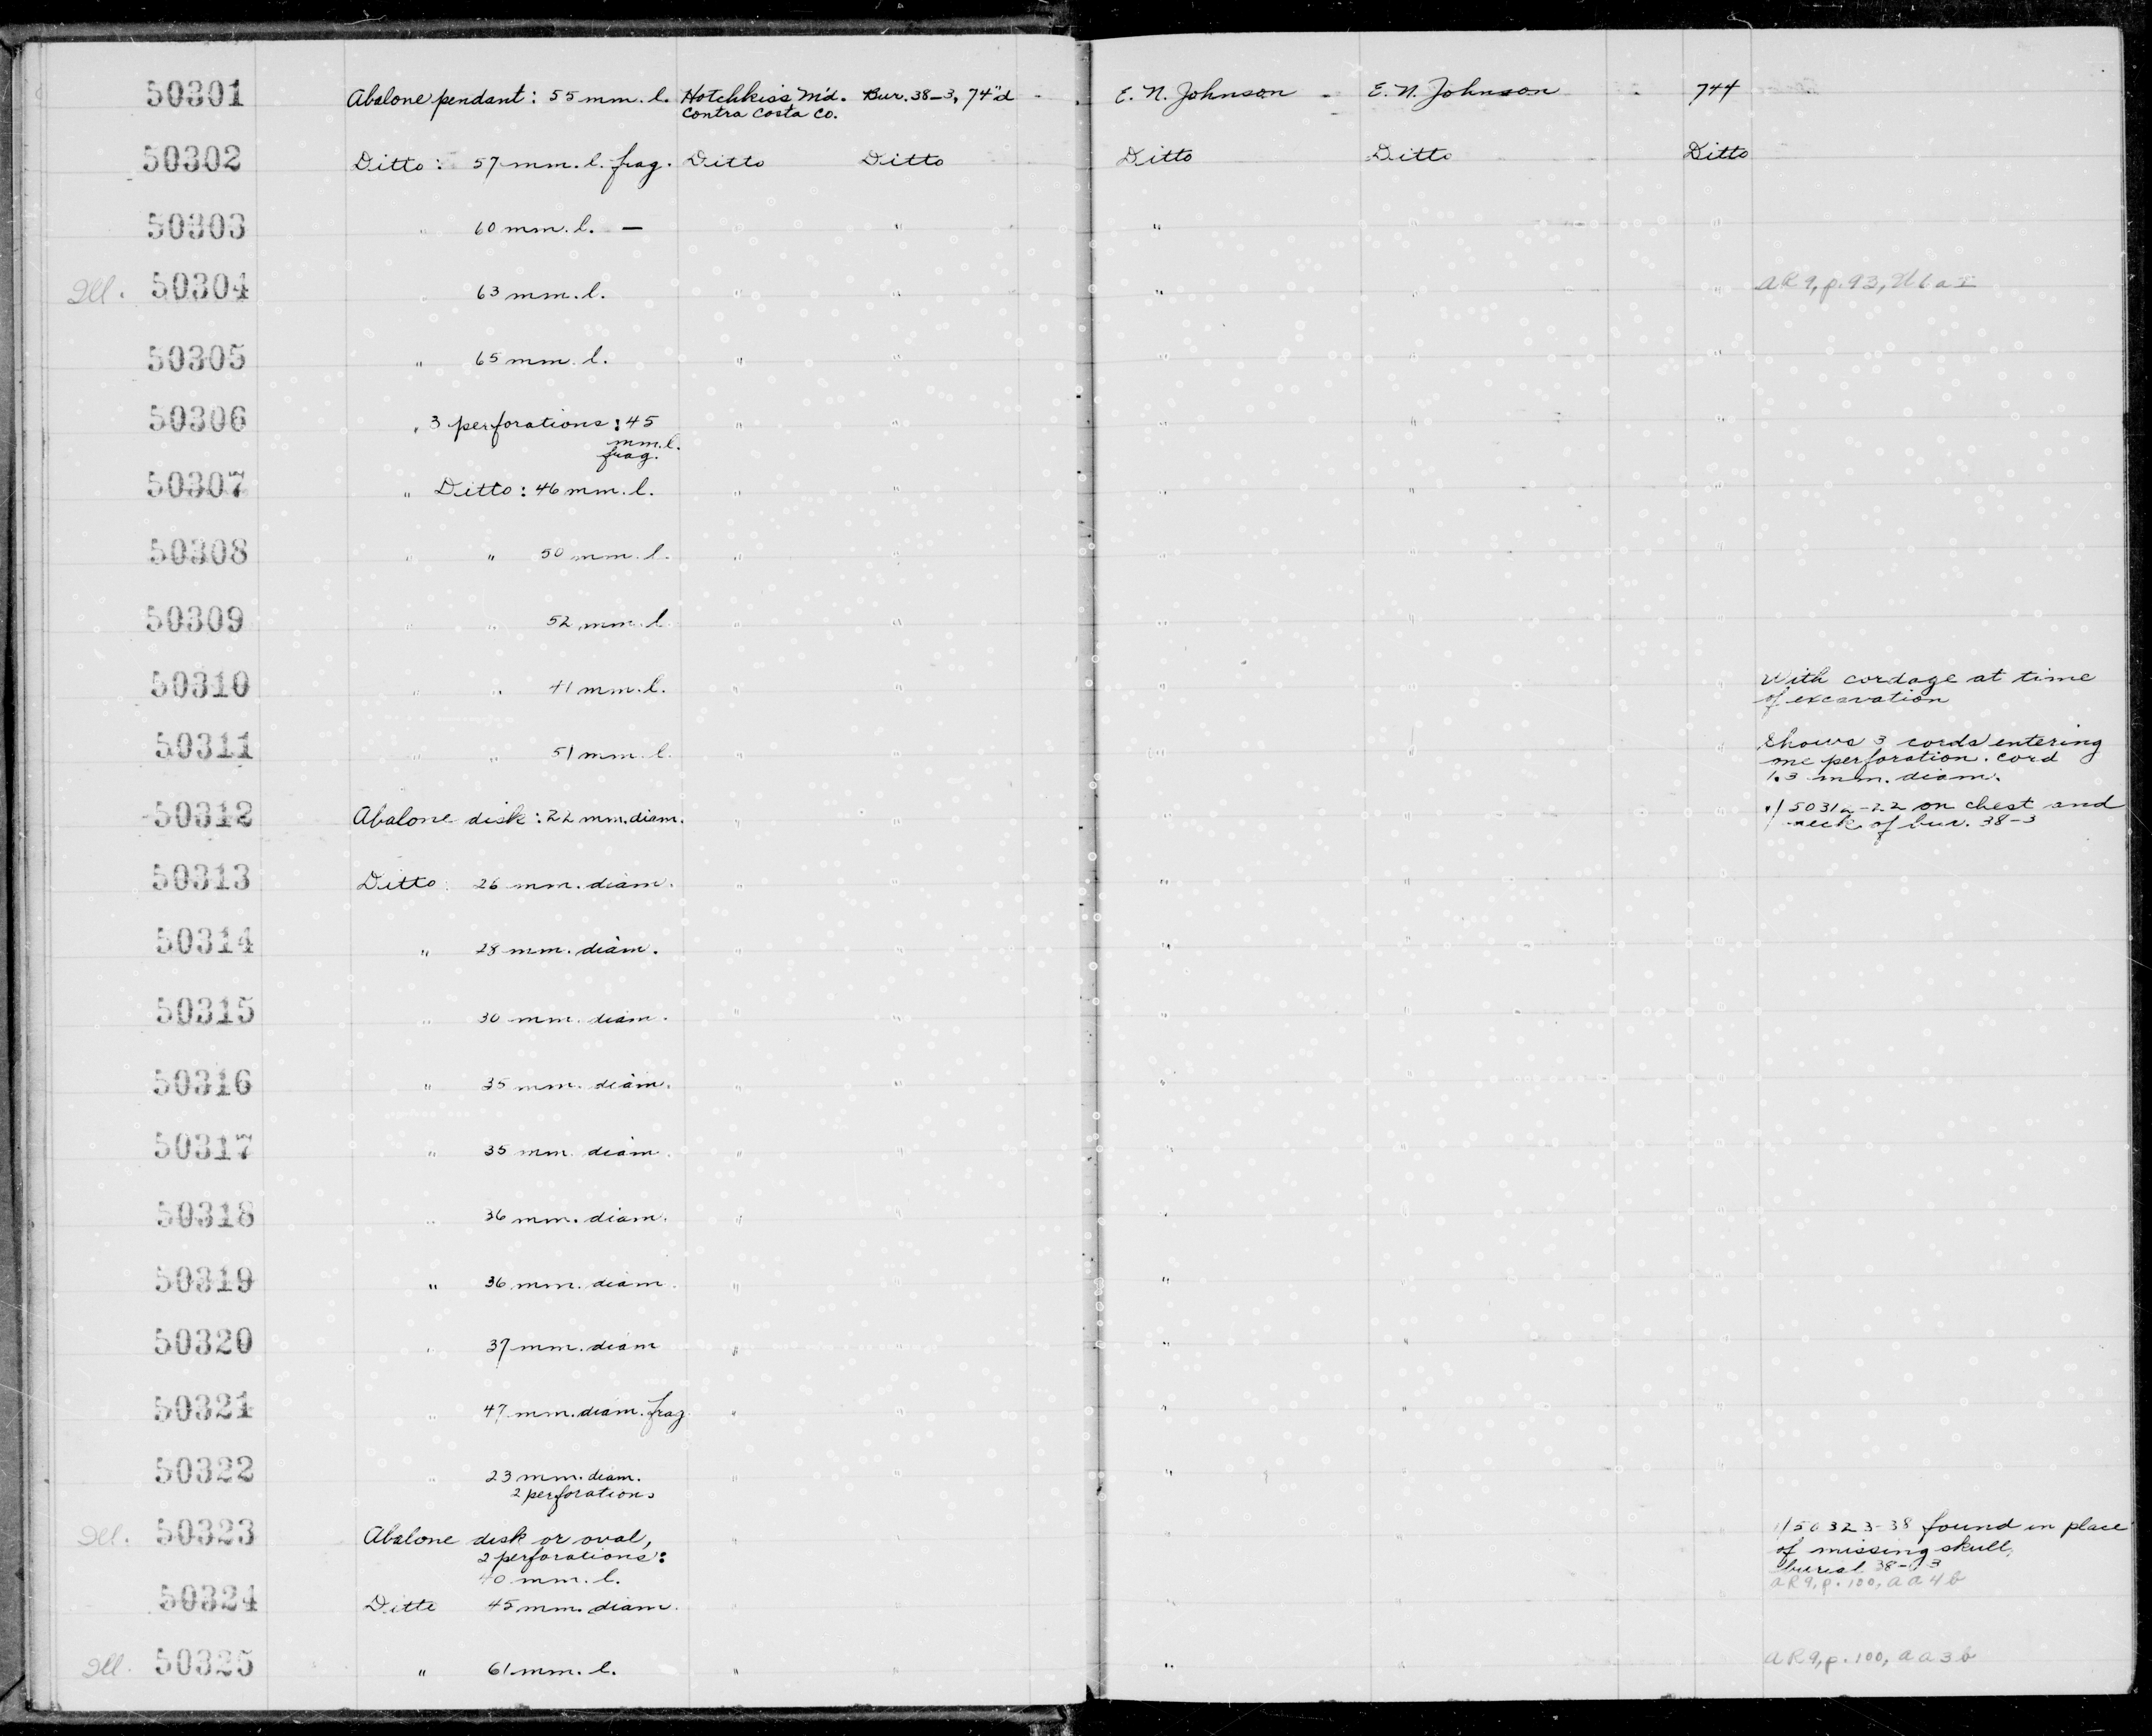 50301 Abalone pendant: 55 mm. l. Hotchkiss M'd. Bur. 38-3, 74"d E. N. Johnson E. N. Johnson 744
Contra Costa Co.
50302 Ditto: 57 mm. l. frag. Ditto Ditto Ditto Ditto Ditto
50303 " 60 mm. l. — " " " " "
Ill. 50304 " 63 mm. l. " " " " " AR9, p. 93,
50305 " 65 mm. l. " " " " "
50306 " 3 perforations: 45 " " " " "
mm. l.
frag.
50307 " Ditto: 46 mm. l. " " " " "
50308 " " 50 mm. l. " " " " "
50309 " " 52 mm. l. " " " " "
50310 " " 41 mm. l. " " " " " With cordage at time
of excavation
50311 " " 51 mm. l. " " " " " Shows 3 cords entering
one perforation. cord
1.3 mm. diam.
50312 Abalone disk: 22 mm. diam. " " " " " 1/50312-22 on chest and
neck of bur. 38-3
50313 Ditto: 26 mm. diam. " " " " "
50314 " 28 mm. diam. " " " " "
50315 " 30 mm. diam. " " " " "
50316 " 35 mm. diam. " " " " "
50317 " 35 mm. diam. " " " " "
50318 " 36 mm. diam. " " " " "
50319 " 36 mm. diam. " " " " "
50320 " 37 mm. diam " " " " "
50321 " 47 mm. diam. frag " " " " "
50322 " 23 mm. diam. " " " " "
2 perforations
Ill. 50323 Abalone disk or oval, " " " " " 1/50323-38 found in place
2 perforations: of missing skull,
40 mm. l. burial 38-3
AR9, p. 100, AA4b
50324 Ditto 45 mm. diam. " " " " "
Ill. 50325 " 61 mm. l. " " " " " AR9, p. 100, AA3b